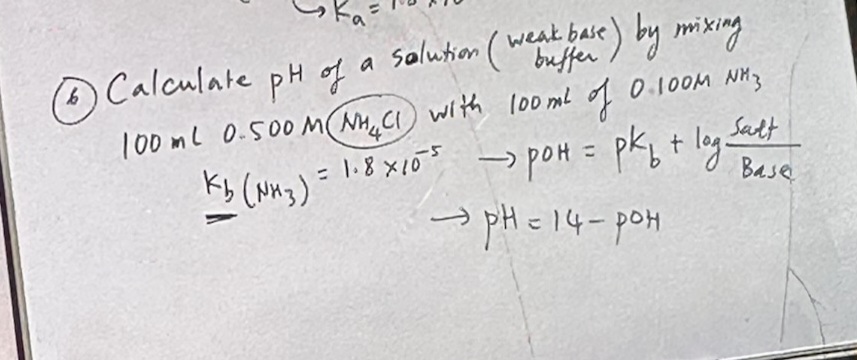 ↳ Ka =
⑥ Calculate pH of a solution (weak base buffer) by mixing
100 ml 0.500 M NH4Cl with 100 ml of 0.100M NH3
Kb (NH3) = 1.8 × 10⁻⁵ → pOH = pKb + log Salt/Base
→ pH = 14 - pOH